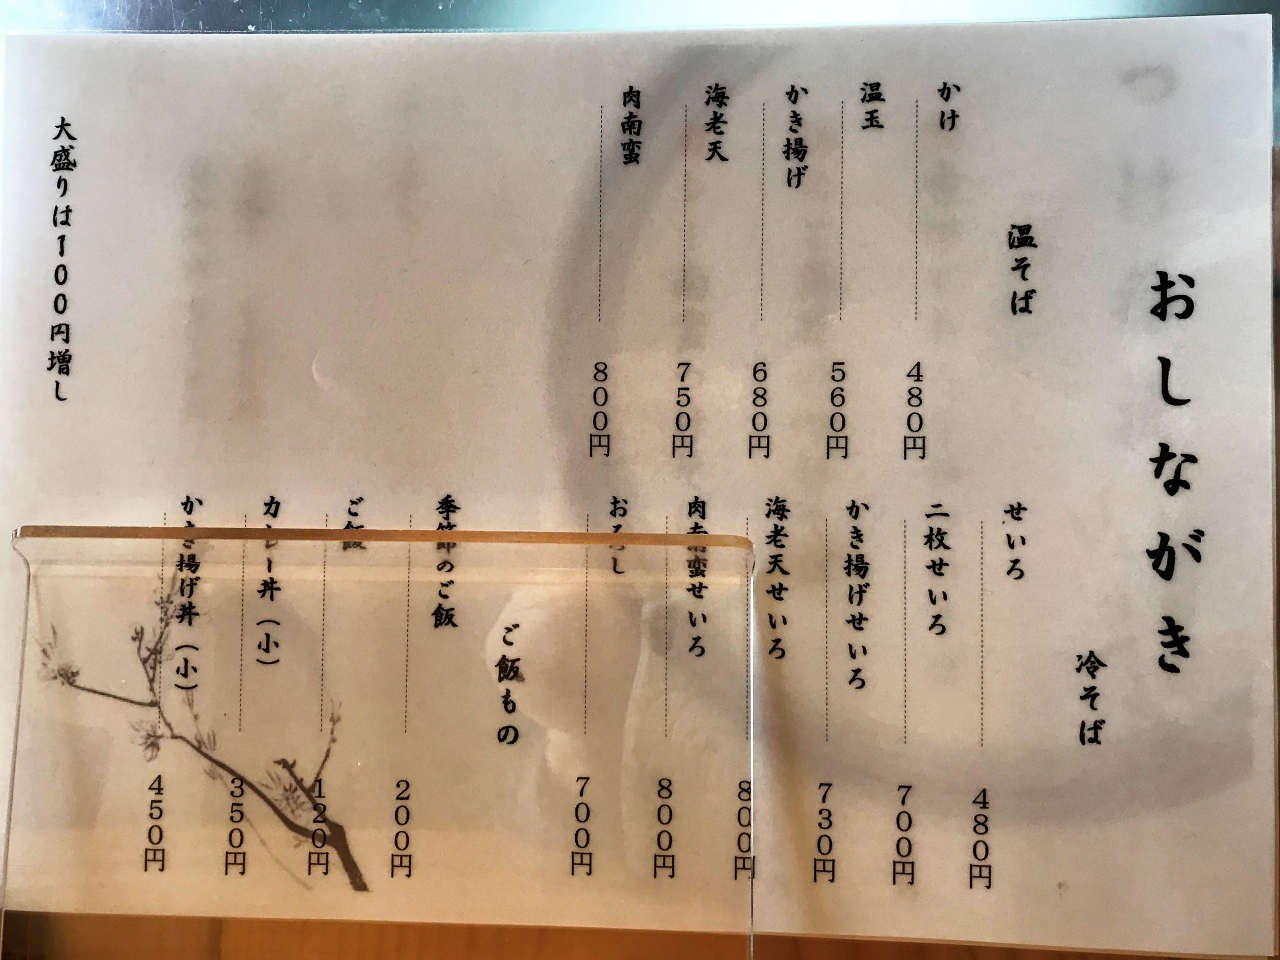 おしながき
温そば
かけ 480円
温玉 560円
かき揚げ 680円
海老天 750円
肉南蛮 800円
冷そば
せいろ 480円
二枚せいろ 700円
かき揚げせいろ 730円
海老天せいろ 800円
肉南蛮せいろ 800円
おろし 700円
ご飯もの
季節のご飯 200円
ご飯 120円
カレー丼（小） 350円
かき揚げ丼（小） 450円
大盛りは100円増し